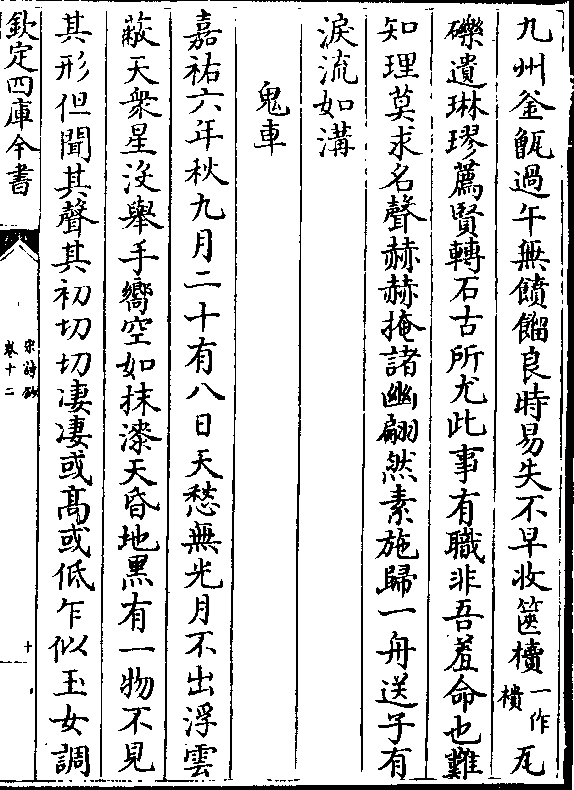 九州釜甑過午無饙餾良時易失不早收篋櫝一作櫝瓦
礫遺琳璆薦賢轉石古所尤此事有職非吾羞命也難
知理莫求名聲赫赫掩諸幽翩然素旐歸一舟送子有
淚流如溝
鬼車
嘉祐六年秋九月二十有八日天愁無光月不出浮雲
蔽天衆星沒舉手嚮空如抹漆天昏地黑有一物不見
其形但聞其聲其初切切凄凄或高或低乍似玉女調
欽定四庫全書
宋詩鈔
卷十二
十